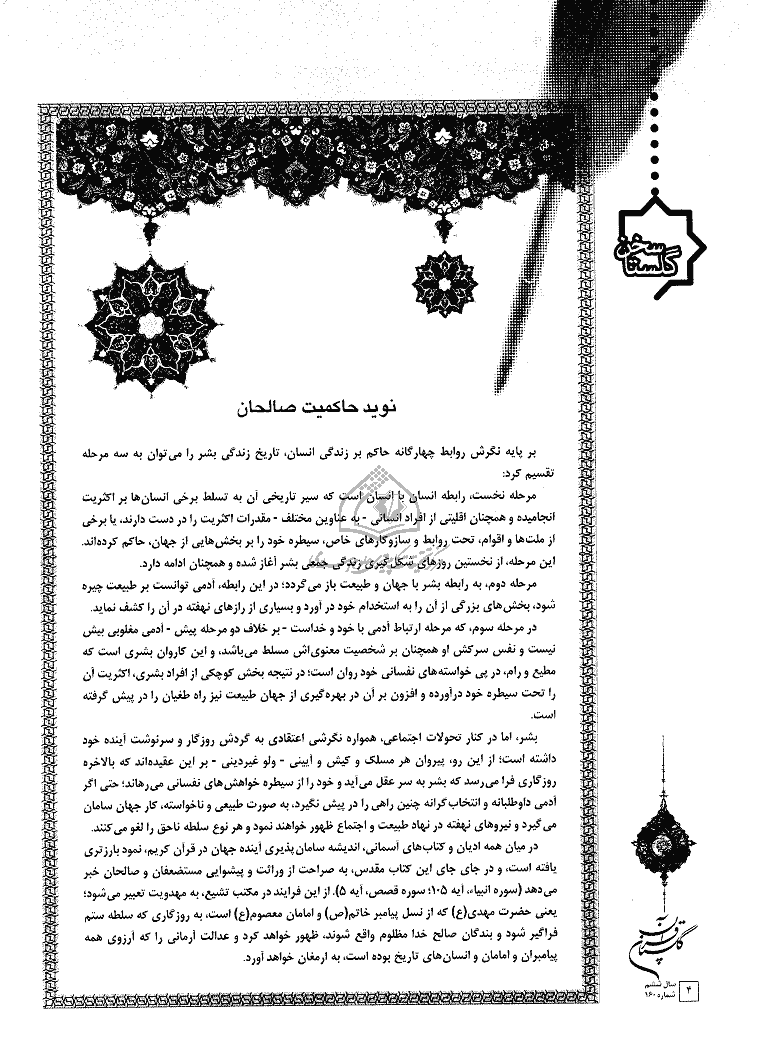 سخن
گلستان
نوید حاکمیت صالحان
بر پایه نگرش روابط چهارگانه حاکم بر زندگی انسان، تاریخ زندگی بشر را می‌توان به سه مرحله
تقسیم کرد:
مرحله نخست، رابطه انسان با انسان است که سیر تاریخی آن به تسلط برخی انسان‌ها بر اکثریت
انجامیده و همچنان اقلیتی از افراد انسانی - به عناوین مختلف - مقدرات اکثریت را در دست دارند، یا برخی
از ملت‌ها و اقوام، تحت روابط و سازوکارهای خاص، سیطره خود را بر بخش‌هایی از جهان، حاکم کرده‌اند.
این مرحله، از نخستین روزهای شکل‌گیری زندگی جمعی بشر آغاز شده و همچنان ادامه دارد.
مرحله دوم، به رابطه بشر با جهان و طبیعت باز می‌گردد؛ در این رابطه، آدمی توانست بر طبیعت چیره
شود، بخش‌های بزرگی از آن را به استخدام خود در آورد و بسیاری از رازهای نهفته در آن را کشف نماید.
در مرحله سوم، که مرحله ارتباط آدمی با خود و خداست - بر خلاف دو مرحله پیش - آدمی مغلوبی بیش
نیست و نفس سرکش او همچنان بر شخصیت معنوی‌اش مسلط می‌باشد، و این کاروان بشری است که
مطیع و رام، در پی خواسته‌های نفسانی خود روان است؛ در نتیجه بخش کوچکی از افراد بشری، اکثریت آن
را تحت سیطره خود درآورده و افزون بر آن در بهره‌گیری از جهان طبیعت نیز راه طغیان را در پیش گرفته
است.
بشر، اما در کنار تحولات اجتماعی، همواره نگرشی اعتقادی به گردش روزگار و سرنوشت آینده خود
داشته است؛ از این رو، پیروان هر مسلک و کیش و آیینی - ولو غیردینی - بر این عقیده‌اند که بالاخره
روزگاری فرا می‌رسد که بشر به سر عقل می‌آید و خود را از سیطره خواهش‌های نفسانی می‌رهاند؛ حتی اگر
آدمی داوطلبانه و انتخاب‌گرانه چنین راهی را در پیش نگیرد، به صورت طبیعی و ناخواسته، کار جهان سامان
می‌گیرد و نیروهای نهفته در نهاد طبیعت و اجتماع ظهور خواهند نمود و هر نوع سلطه ناحق را لغو می‌کنند.
در میان همه ادیان و کتاب‌های آسمانی، اندیشه سامان‌پذیری آینده جهان در قرآن کریم، نمود بارزتری
یافته است، و در جای جای این کتاب مقدس، به صراحت از وراثت و پیشوایی مستضعفان و صالحان خبر
می‌دهد (سوره انبیاء، آیه ۱۰۵؛ سوره قصص، آیه ۵). از این فرایند در مکتب تشیع، به مهدویت تعبیر می‌شود؛
یعنی حضرت مهدی(ع) که از نسل پیامبر خاتم(ص) و امامان معصوم(ع) است، به روزگاری که سلطه ستم
فراگیر شود و بندگان صالح خدا مظلوم واقع شوند، ظهور خواهد کرد و عدالت آرمانی را که آرزوی همه
پیامبران و امامان و انسان‌های تاریخ بوده است، به ارمغان خواهد آورد.
گلستان قرآن
۴
سال ششم
شماره ۱۶۰